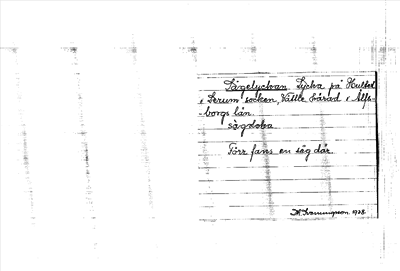 Sågelyckan Lycka på Hultet
i Lerum socken, Vättle härad i Älfs-
-borgs län.
sågeloka.
Förr fans en såg där.
1928.